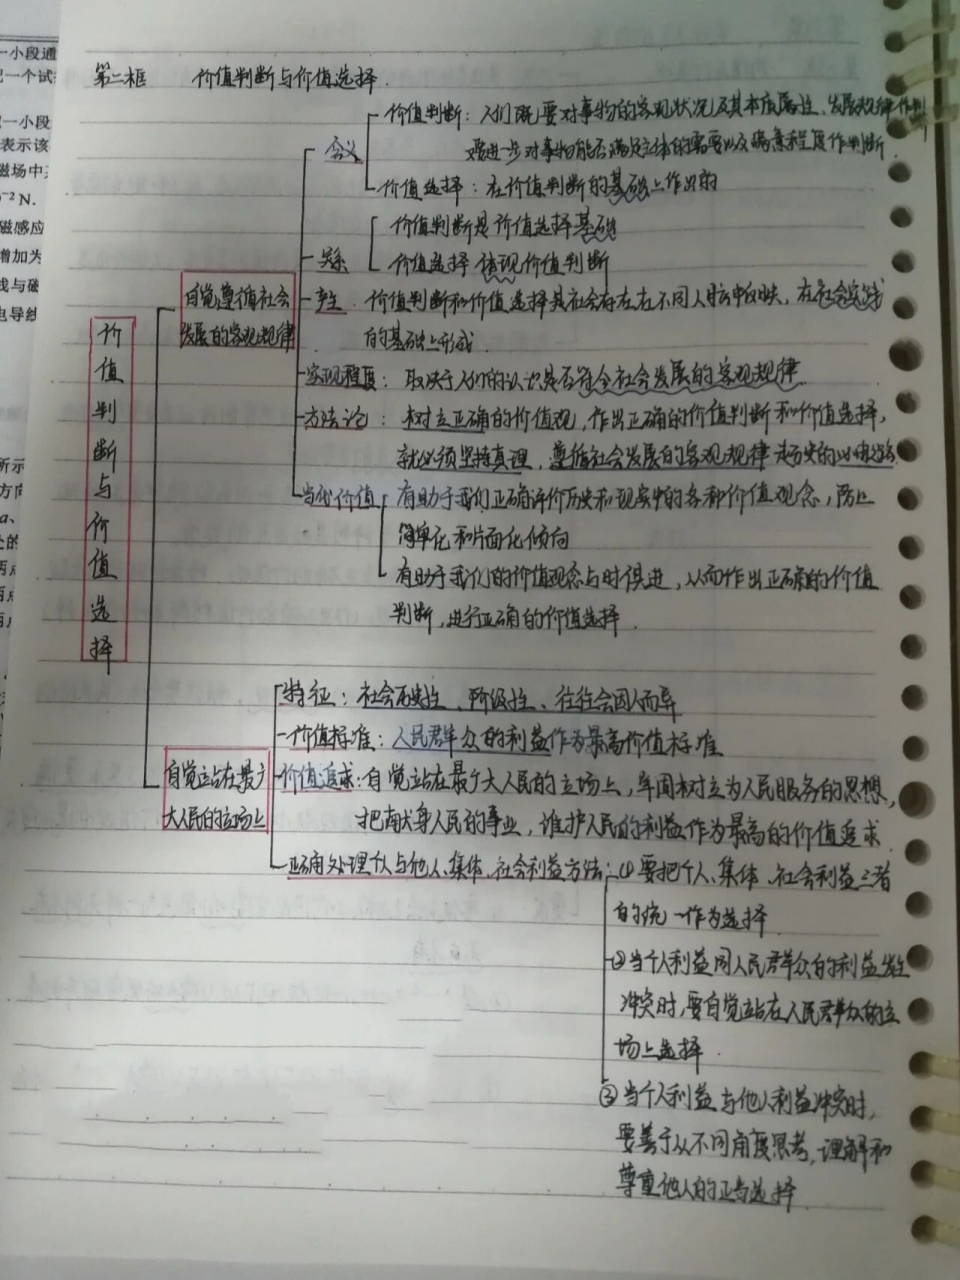 第二框 价值判断与价值选择.
价值判断与价值选择
自觉遵循社会
发展的客观规律
含义
价值判断：人们既要对事物的客观状况及其本质属性、发展规律作判
要进一步对事物能否满足主体的需要以及满意程度作判断.
价值选择：在价值判断的基础上作出的
关系
价值判断是价值选择基础
价值选择体现价值判断
产生 价值判断和价值选择是社会存在在不同人脑中反映，在社会实践
的基础上形成.
实现程度：取决于人们的认识是否符合社会发展的客观规律.
方法论：树立正确的价值观，作出正确的价值判断和价值选择，
就必须坚持真理，遵循社会发展的客观规律
当代价值
有助于我们正确评价历史和现实中的各种价值观念，防止
简单化和片面化倾向
有助于我们的价值观念与时俱进，从而作出正确的价值
判断，进行正确的价值选择.
自觉站在最广
大人民的立场上
特征：社会历史性、阶级性、往往会因人而异
价值标准：人民群众的利益作为最高价值标准
价值追求：自觉站在最广大人民的立场上，牢固树立为人民服务的思想，
把献身人民的事业，维护人民的利益作为最高的价值追求.
正确处理个人与他人、集体、社会利益方法：①要把个人、集体、社会利益三者
的统一作为选择
②当个人利益同人民群众的利益发生
冲突时，要自觉站在人民群众的立
场上选择.
③当个人利益与他人利益冲突时，
要善于从不同角度思考，理解和
尊重他人的正当选择
一小段通
一个试
一小段
表示该
磁场中
N.
磁感应
增加为
线与磁
电导线
所示
方向
处的
两点
两点
两点